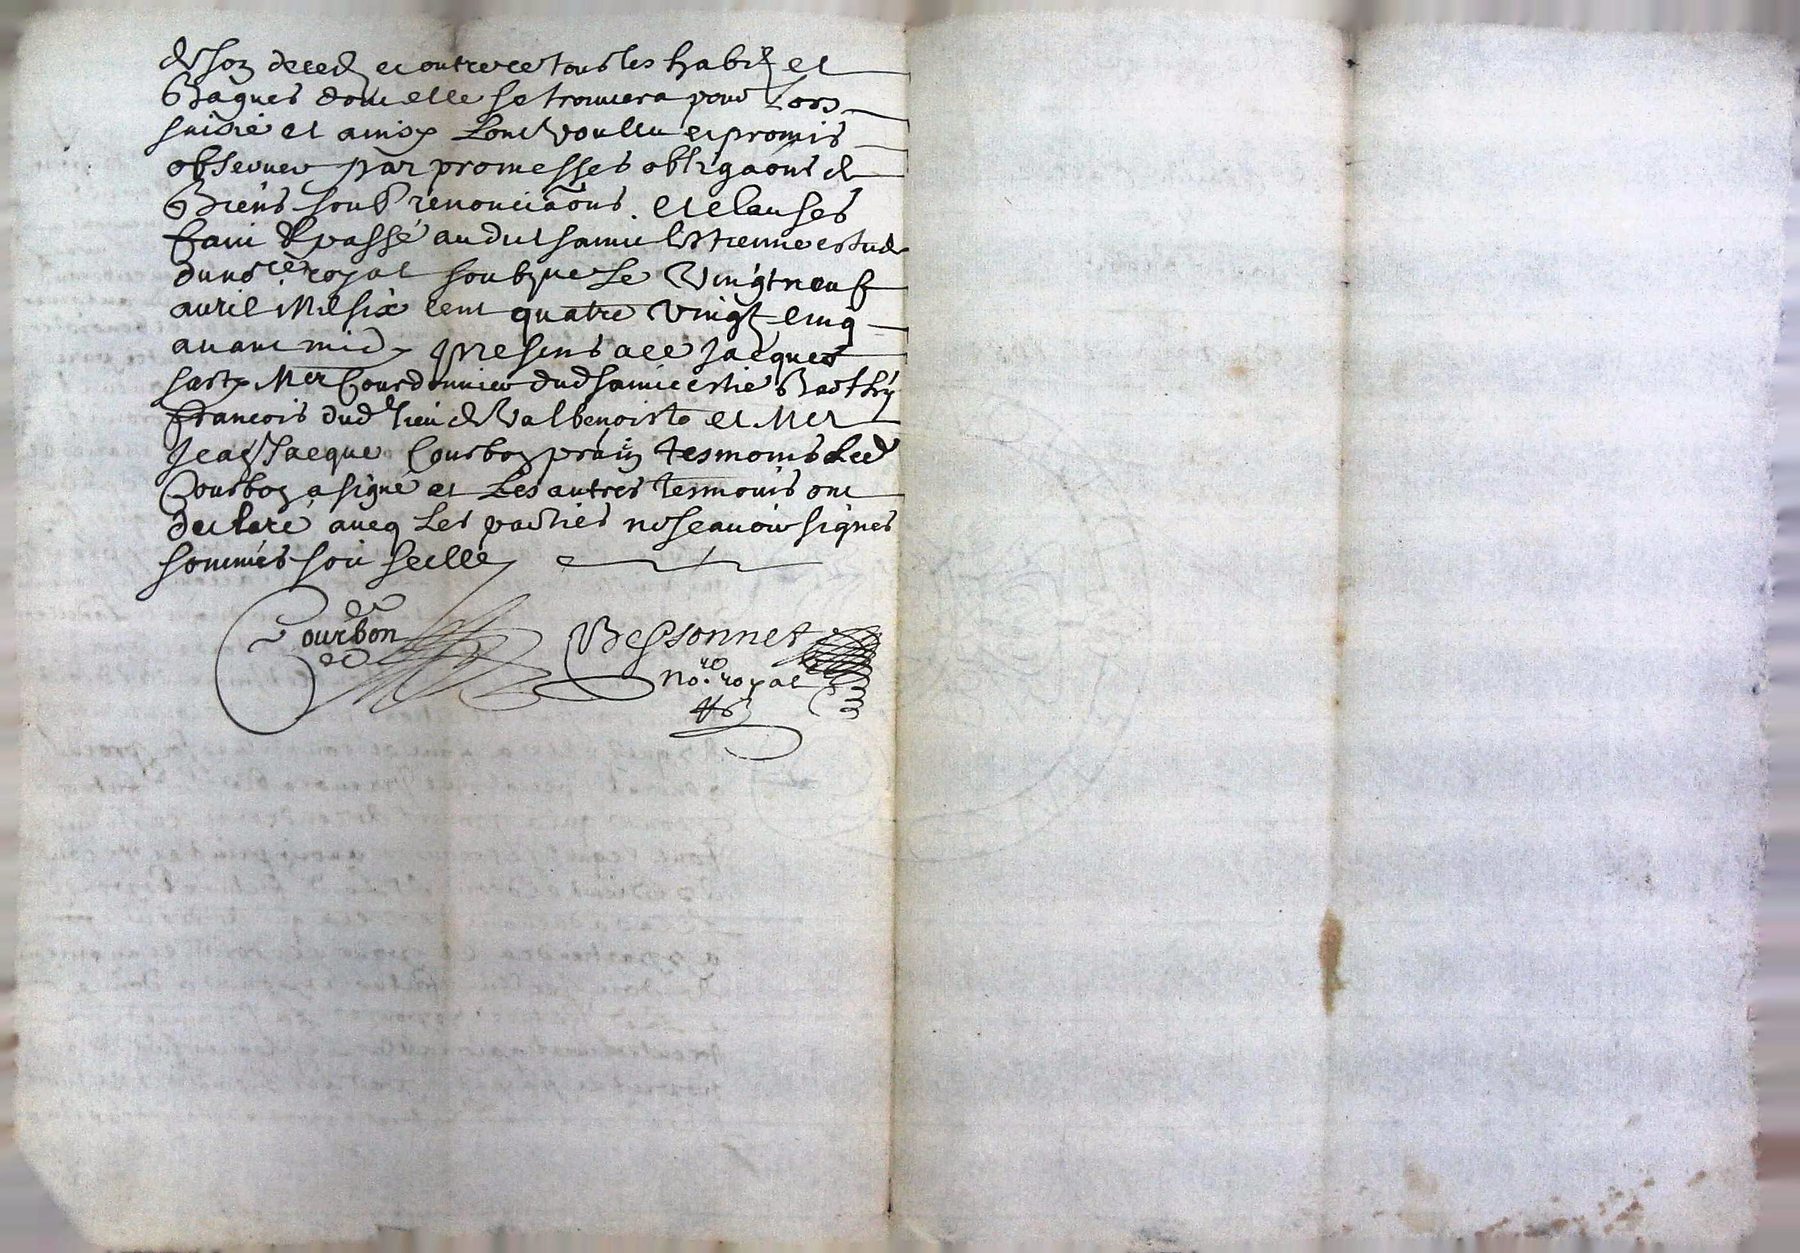 de son deced et outre ce tous les habitz et
Bagues dont elle se trouvera pour Lors
saisie et ainsy Lont voullu et promis
observer par promesses obligaons de
Biens soubz renonciaons et clauses
faict & passé audict sainct Estienne estude
du nore royal soubzne Le Vingt neuf
avril Mil six cent quatre Vingt Cinq
avant midy presens a ce Jacques
Mer Courdonnier dud sainct estie Barthy
francois dud lieu de Valbenoiste et Mer
Jean Jacque Courbon tesmoins Led
Courbon a signé et Les autres tesmoins ont
declaré avecq Les parties ne scavoir signer
sommés soit scellé
Courbon Bessonnet
nore royal